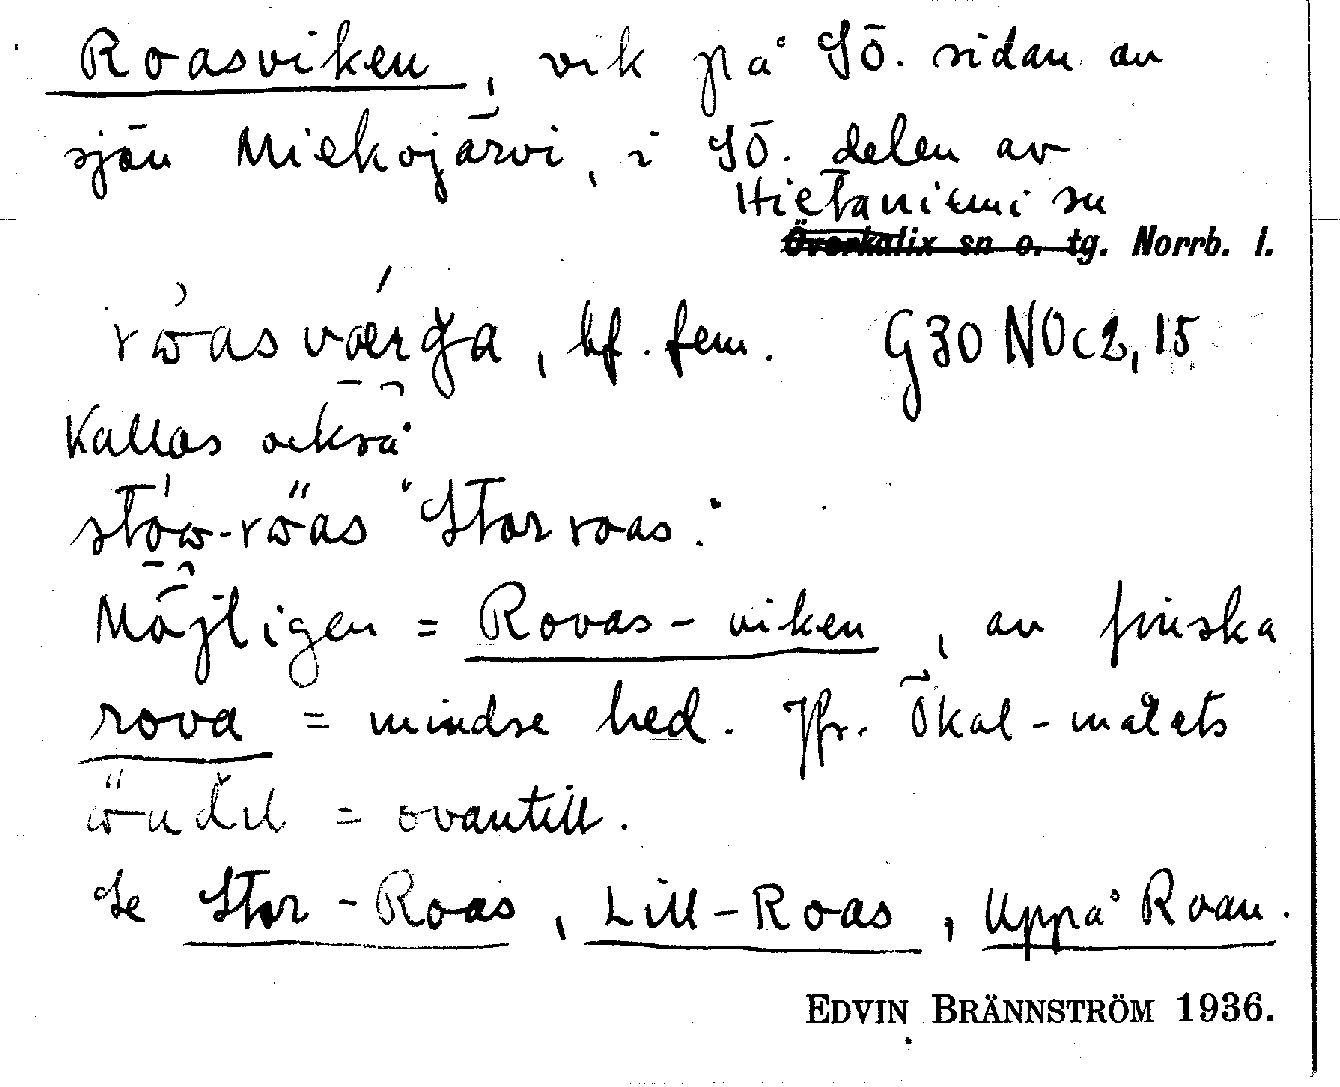 Roasviken, vik på SÖ. sidan av
sjön Miekojärvi, i SÖ. delen av
Hietaniemi sn
Överkalix sn o. tg. Norrb. l.
bf. fem. G30 NOc2,15
Kallas också
"Storroas".
Möjligen = Rovas-viken, av finska
rova = mindre hed. Jfr. Ökal-målets
= ovantill.
Se Stor-Roas, Lill-Roas, Uppå Roan.
EDVIN BRÄNNSTRÖM 1936.